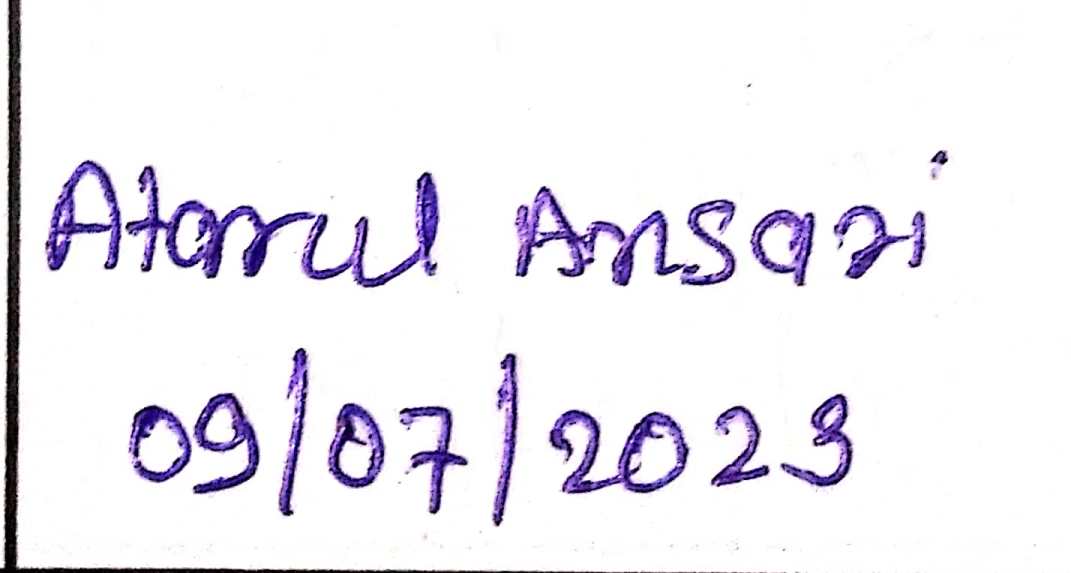 Atarul Ansari
09/07/2023